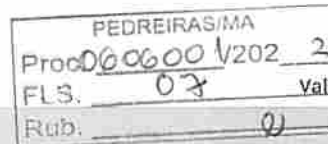 PEDREIRAS/MA
Proc 0606001/202 2
FLS. 07
Val
Rub.